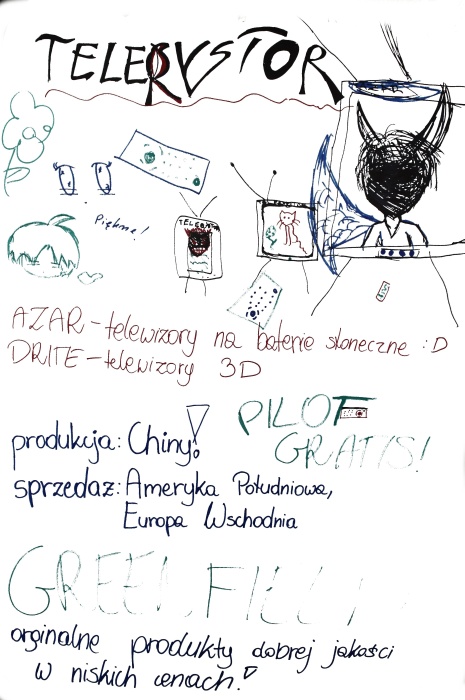 TELERVSTOR
Piękne!
AZAR - telewizory na baterie słoneczne :D
DRITE - telewizory 3D
PILOT
GRATIS!
produkcja: Chiny!
sprzedaż: Ameryka Południowa,
Europa Wschodnia
orginalne produkty dobrej jakości
w niskich cenach!